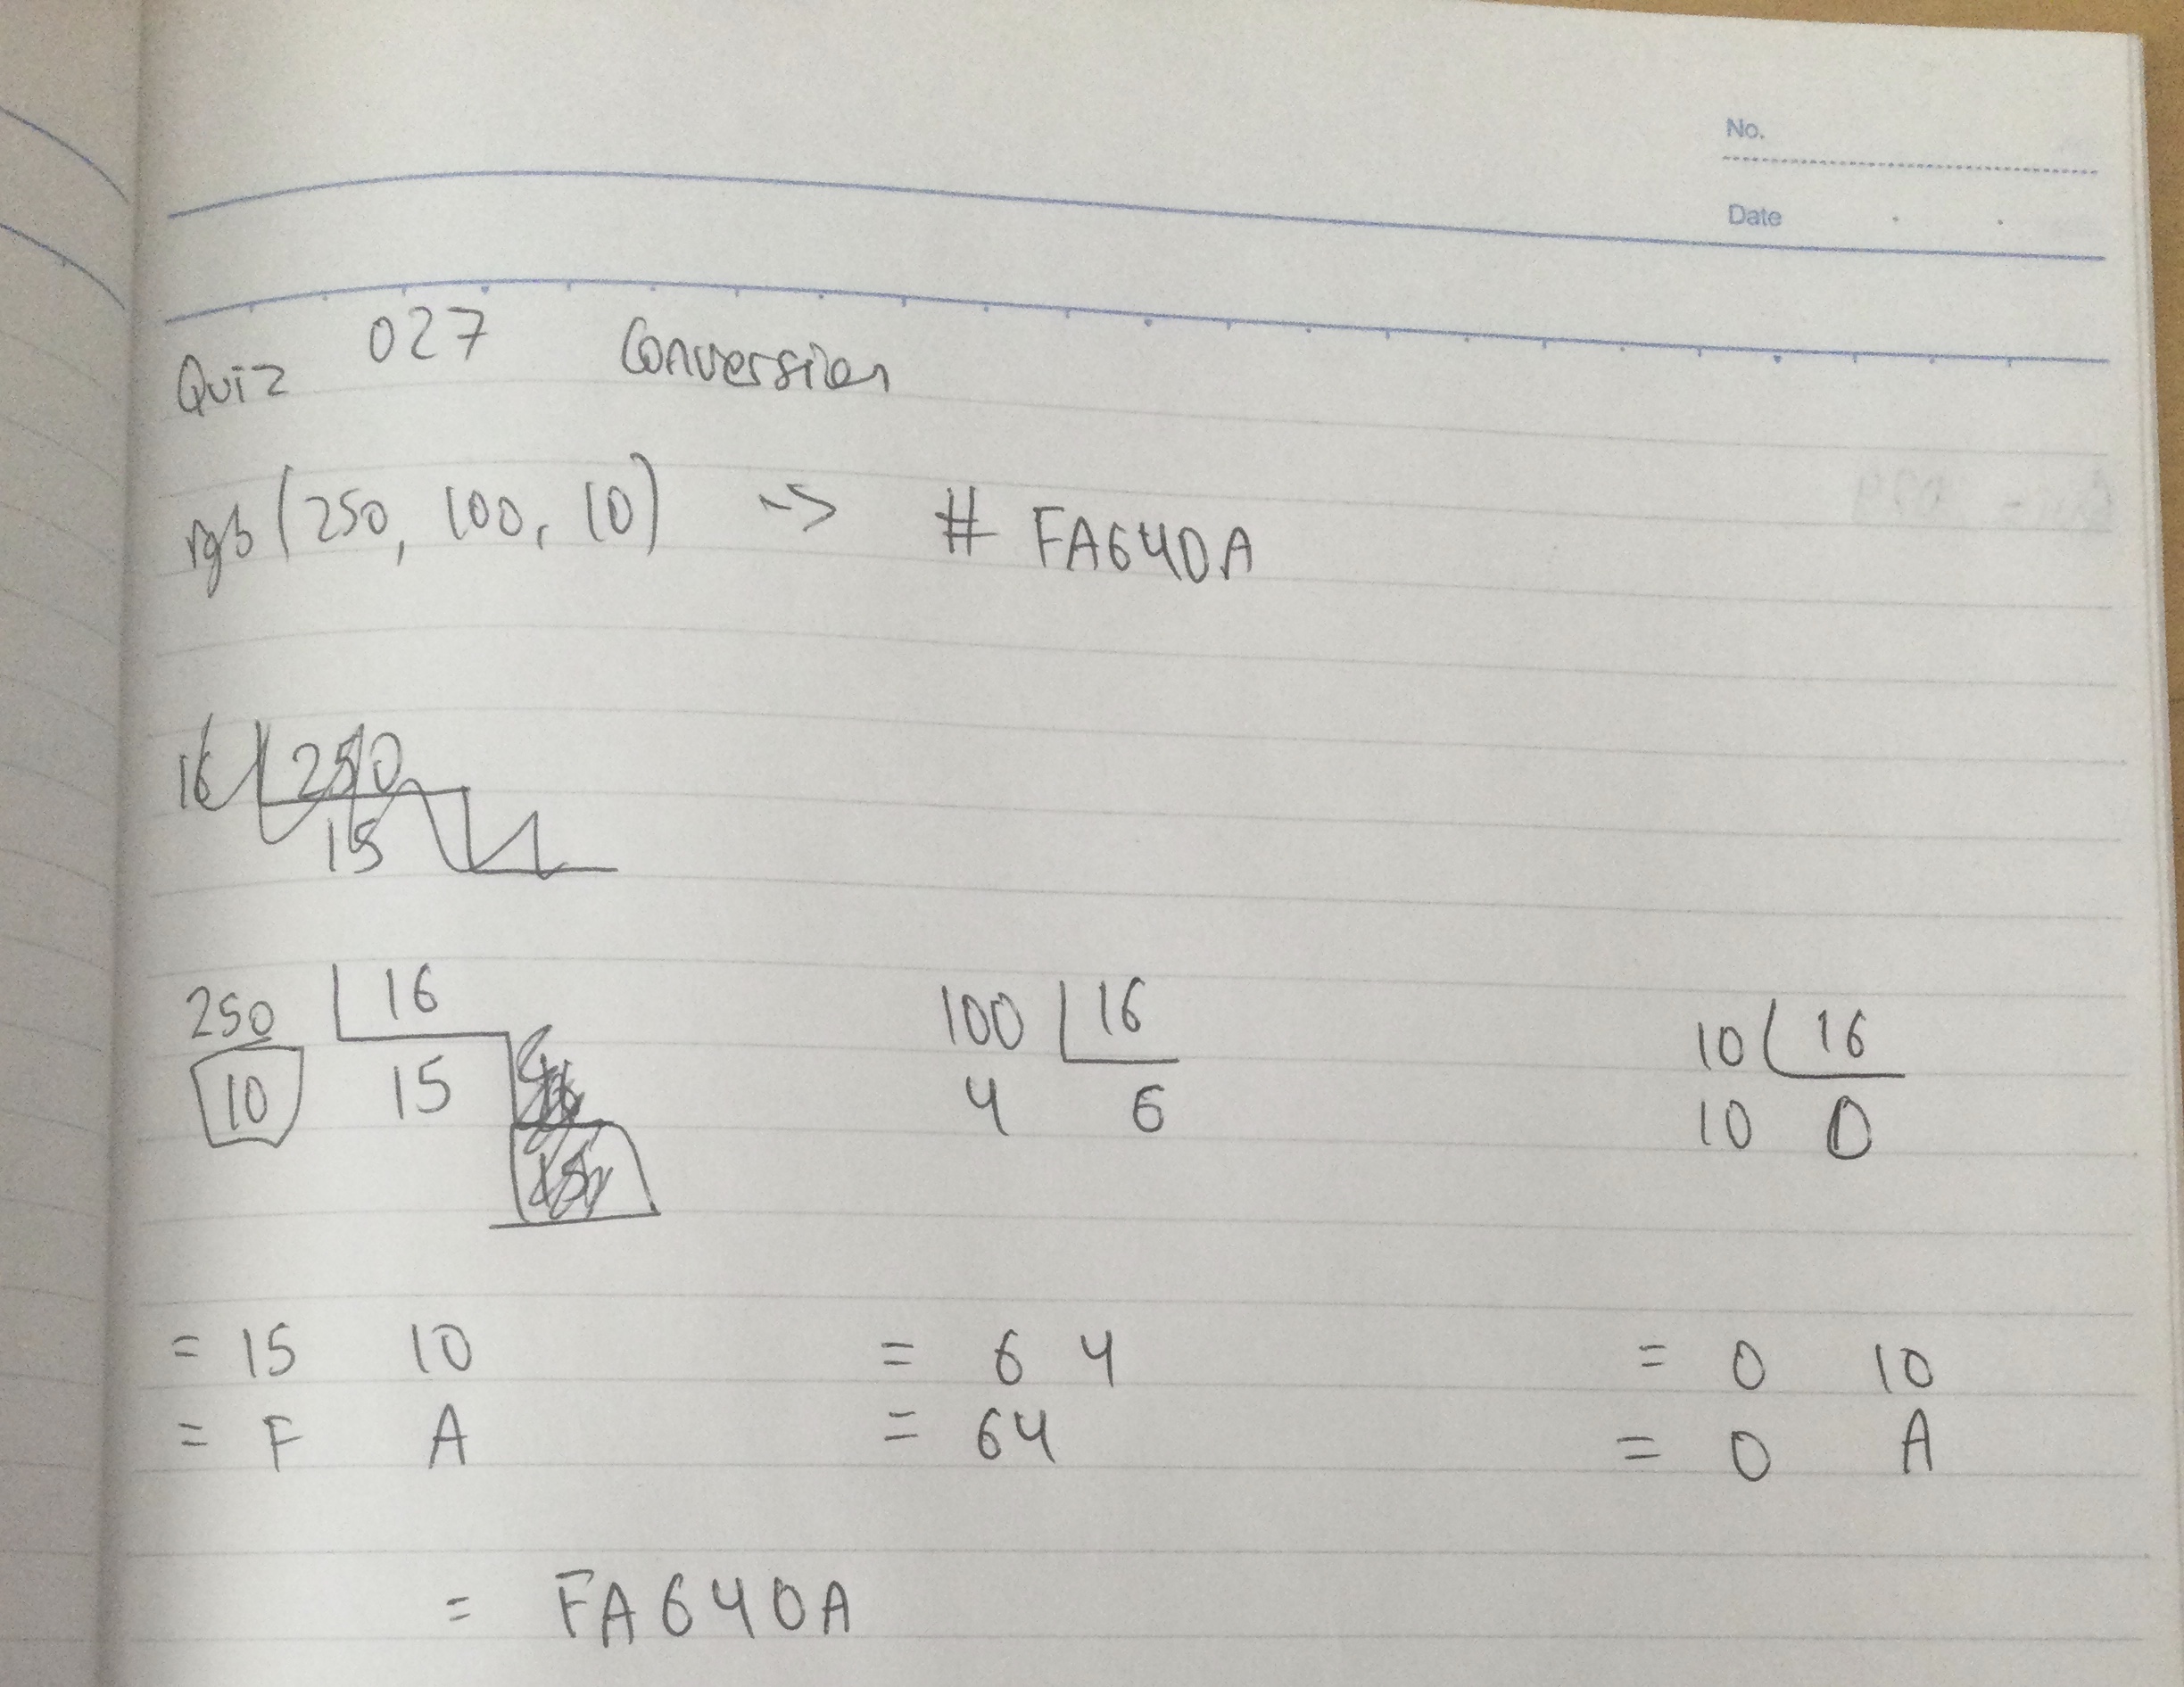 No.
Date
Quiz 027 Conversion
rgb (250, 100, 10) -> # FA640A
16 250
15
250 16 100 16 10 16
10 15 4 6 10 0
= 15 10 = 6 4 = 0 10
= F A = 64 = 0 A
= FA640A